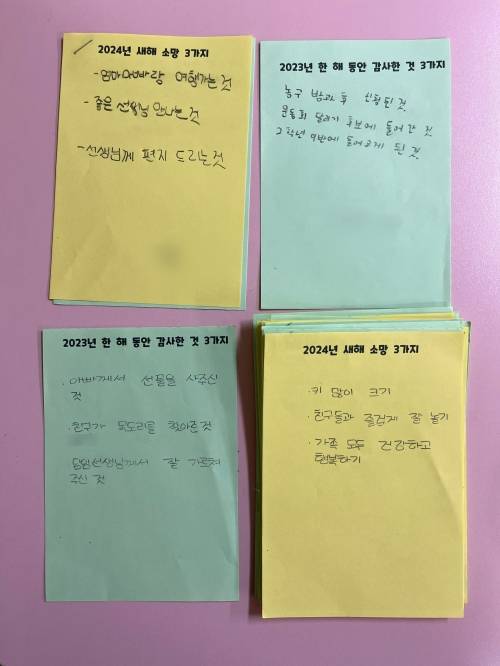 2024년 새해 소망 3가지
-엄마아빠랑 여행가는것
좋은 선생님 만나는것
-선생님께 편지 드리는것
2023년 한 해 동안 감사한 것 3가지
농구 방과후 신청된것
운동회 달리기 후보에 들어간 것
2학년 9반에 들어오게 된 것
2023년 한 해 동안 감사한 것 3가지
· 아빠께서 선물을 사주신
것
· 친구가 목도리를 찾아준것
담임선생님께서 잘 가르쳐
주신 것
2024년 새해 소망 3가지
· 키 많이 크기
· 친구들과 즐겁게 잘 놀기
· 가족 모두 건강하고
행복하기